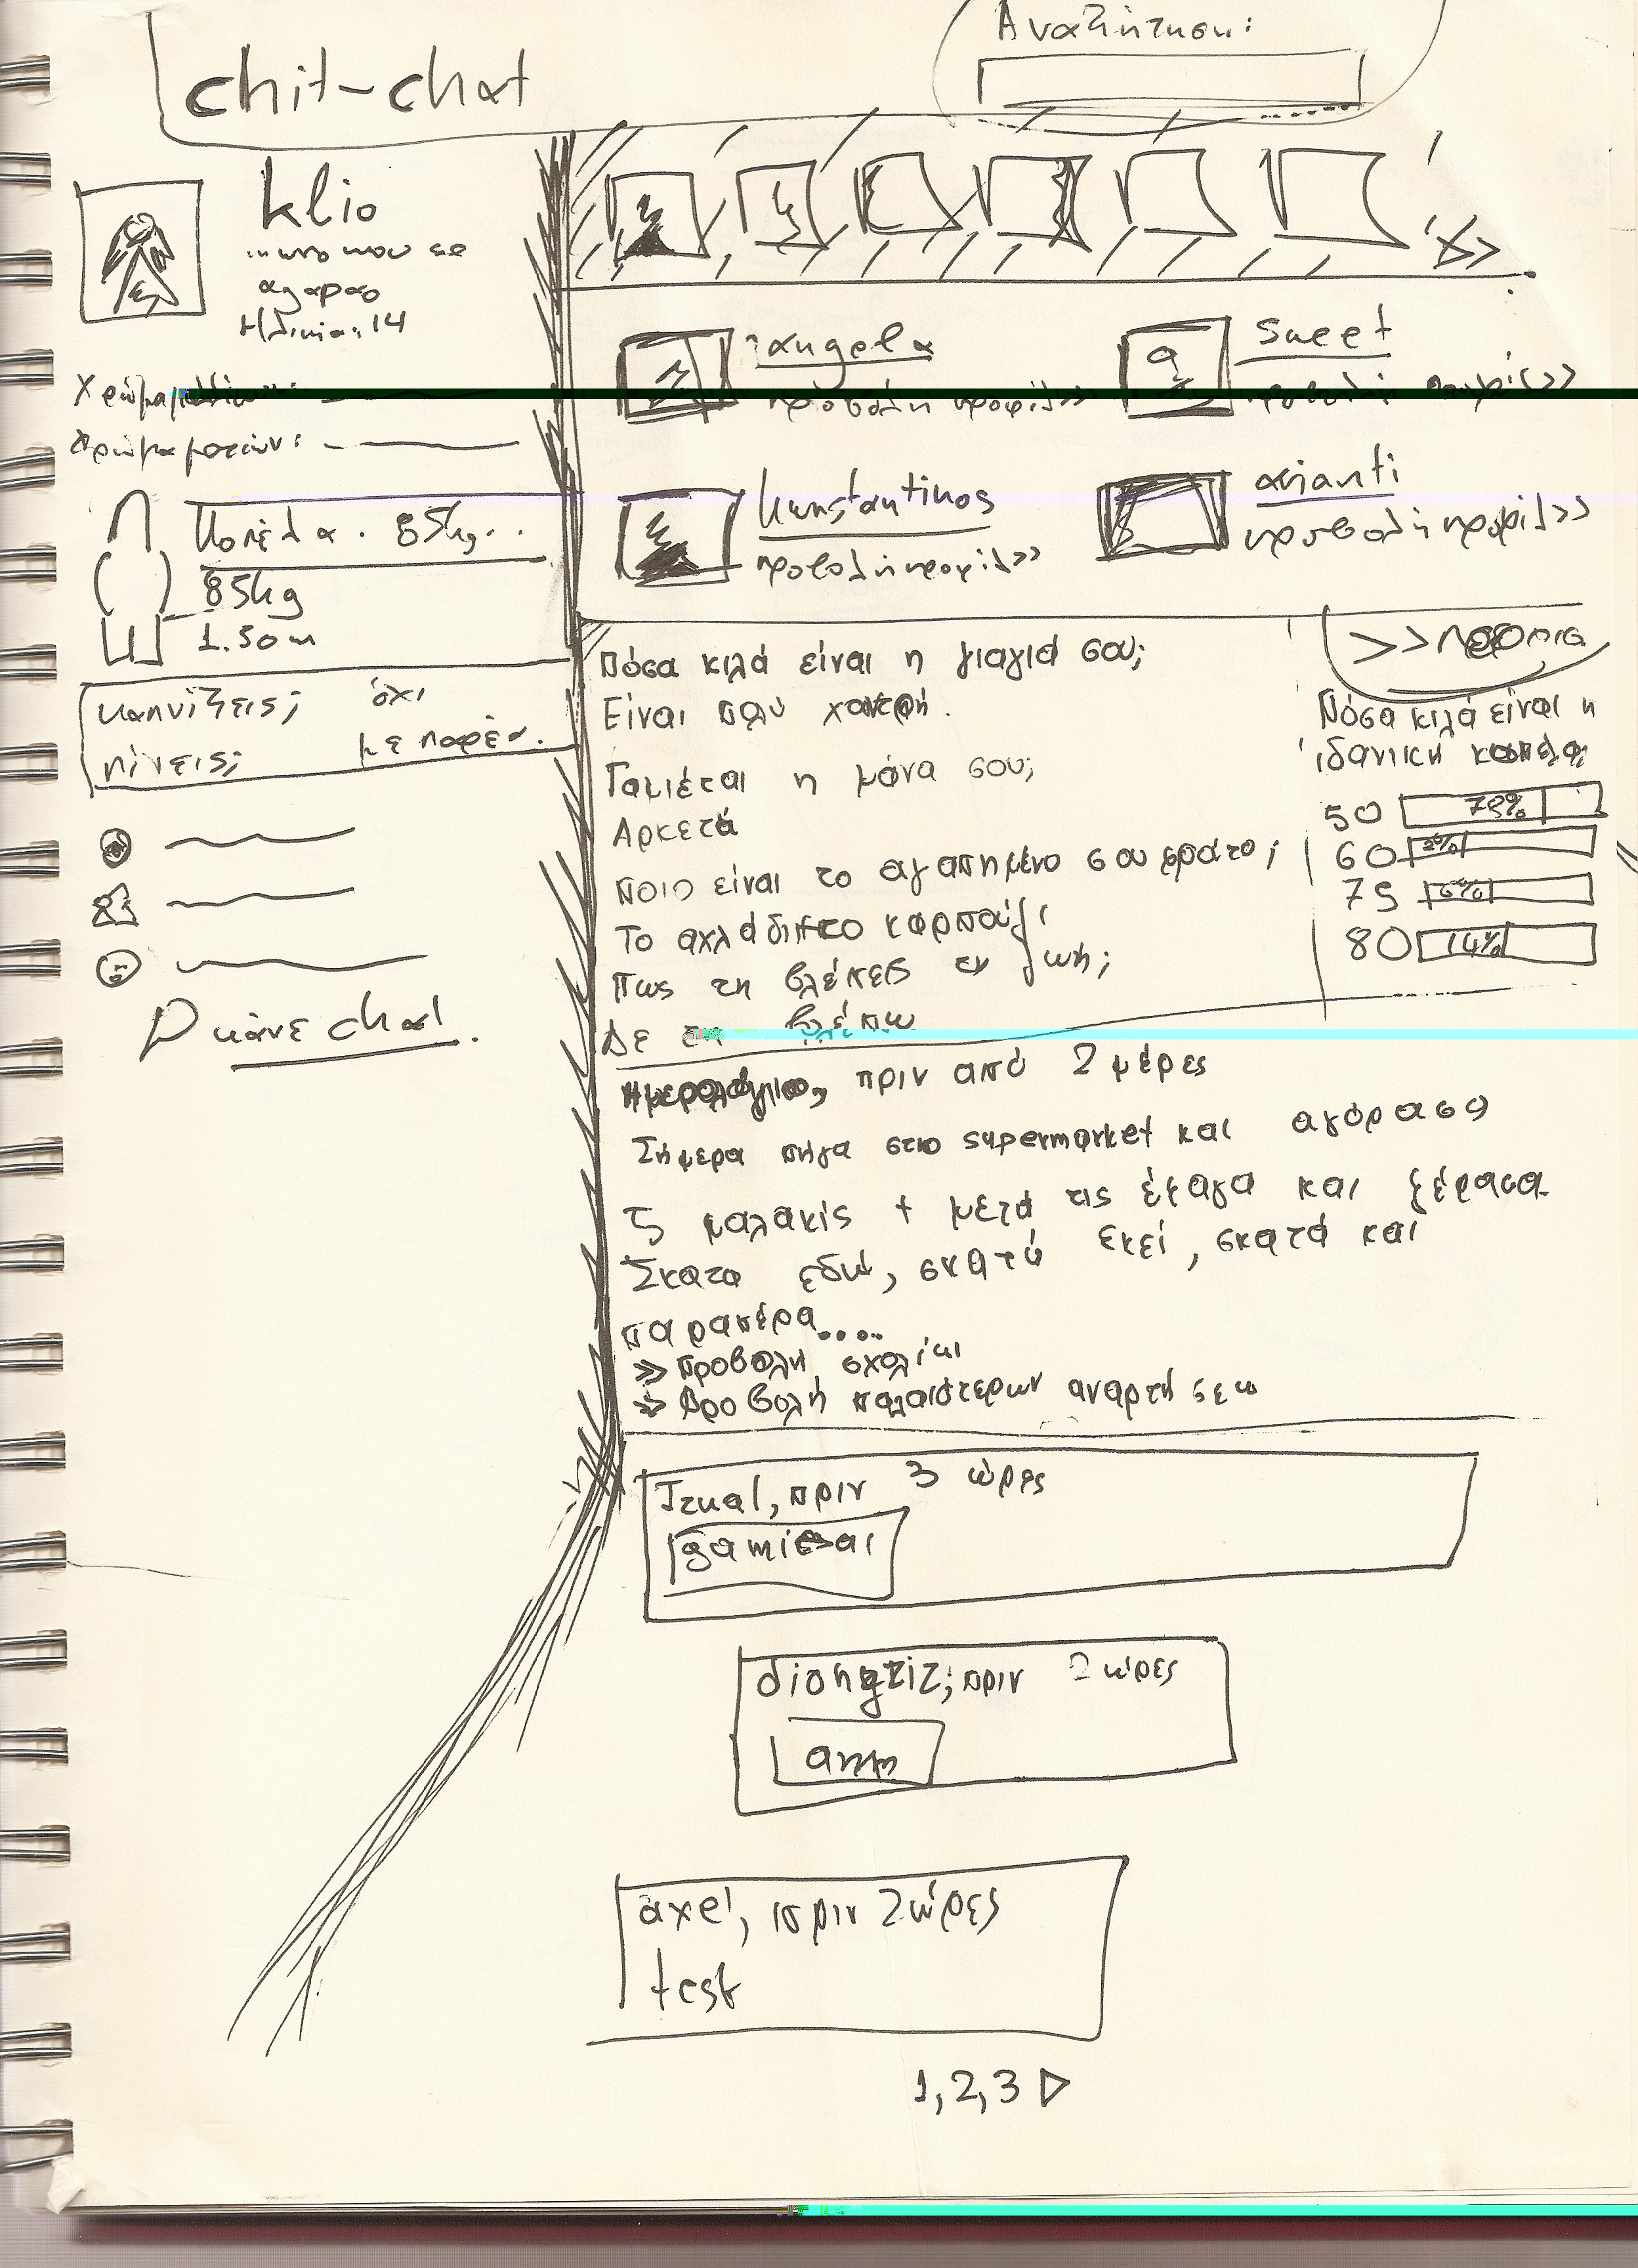 chit-chat
Αναζήτηση:
klio
αγαραο
Ηλικία: 14
Κοπέλα. 85kg..
85kg
1.50m
καπνίζεις; όχι
πίνεις; με παρέα.
κάνε chat
angela
προβολή προφίλ>>
sweet
προβολή προφίλ>>
kwnstantinos
προβολή προφίλ>>
arianti
προβολή προφίλ>>
Πόσα κιλά είναι η γιαγιά σου;
Είναι πολύ χοντρή.
Γαμιέται η μάνα σου;
Αρκετά
Ποιο είναι το αγαπημένο σου φρούτο;
Το αχλάδι το καρπούζι
Πως τη βλέπεις τη ζωή;
Δε τη βλέπω
>>
Πόσα κιλά είναι η
ιδανική κοπέλα
50 78%
60 2%
75 6%
80 14%
Ημερολόγιο, πριν από 2 μέρες
Σήμερα πήγα στο supermarket και αγόρασα
5 μαλακίς + μετά τις έφαγα και ξέρασα.
Σκατα εδώ, σκατά εκεί, σκατά και
παραπέρα....
>> Προβολή σχολίων
>> Προβολή παλαιότερων αναρτήσεω
Izual, πριν 3 ώρες
gamiesai
dionyziz, πριν 2 ώρες
axel, πριν 2 ώρες
test
1, 2, 3